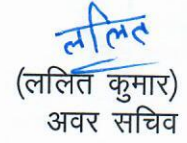 ललित
(ललित कुमार)
अवर सचिव